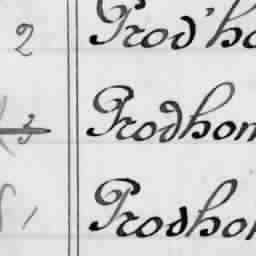 2 Prod'ho
3 Prodhom
1 Prodhor